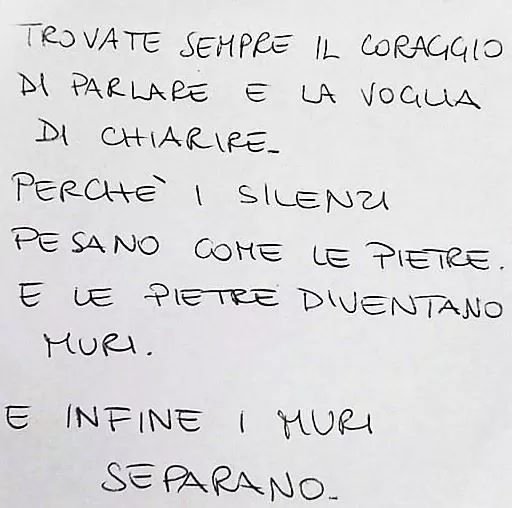 TROVATE SEMPRE IL CORAGGIO
DI PARLARE E LA VOGLIA
DI CHIARIRE_
PERCHÈ I SILENZI
PESANO COME LE PIETRE.
E LE PIETRE DIVENTANO
MURI.
E INFINE I MURI
SEPARANO_